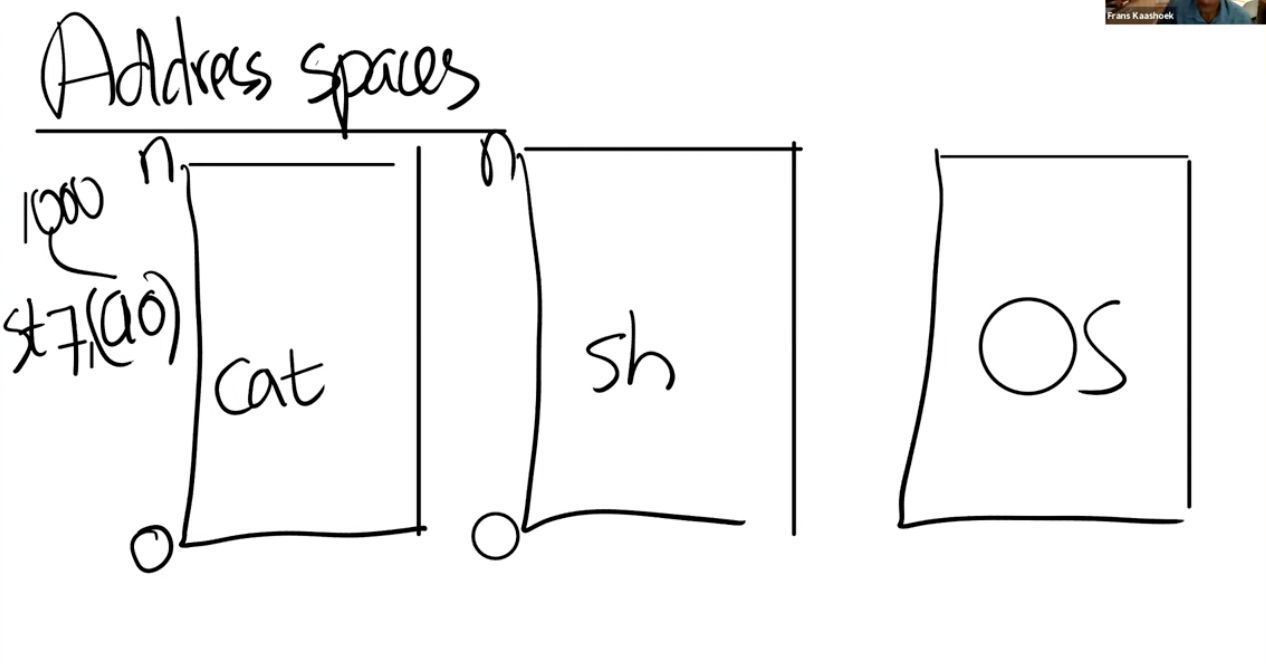 Frans Kaashoek
Address spaces
n
n
1000
st 7,(a0)
cat
sh
OS
0
0